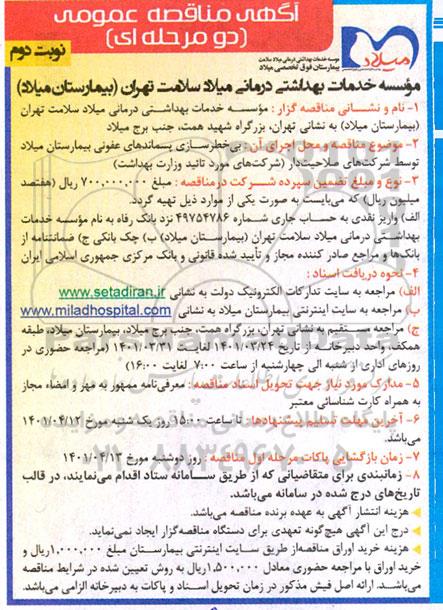 آگهی مناقصه عمومی
(دو مرحله ای)
نوبت دوم
میلاد
موسسه خدمات بهداشتی درمانی میلاد سلامت
بیمارستان فوق تخصصی میلاد
مؤسسه خدمات بهداشتی درمانی میلاد سلامت تهران (بیمارستان میلاد)
۱- نام و نشانی مناقصه گزار : مؤسسه خدمات بهداشتی درمانی میلاد سلامت تهران
(بیمارستان میلاد) به نشانی تهران، بزرگراه شهید همت، جنب برج میلاد
۲- موضوع مناقصه و محل اجرای آن : بی‌خطرسازی پسماندهای عفونی بیمارستان میلاد
توسط شرکت‌های صلاحیت‌دار (شرکت‌های مورد تائید وزارت بهداشت)
۳- نوع و مبلغ تضمین سپرده شرکت در مناقصه : مبلغ ۷۰۰,۰۰۰,۰۰۰ ریال (هفتصد
میلیون ریال) که می‌بایست به صورت یکی از موارد ذیل تهیه گردد.
الف) واریز نقدی به حساب جاری شماره ۴۹۷۵۴۷۸۶ نزد بانک رفاه به نام مؤسسه خدمات
بهداشتی درمانی میلاد سلامت تهران (بیمارستان میلاد) ب) چک بانکی ج) ضمانتنامه از
بانک‌ها و مراجع صادر کننده مجاز و تأیید شده قانونی و بانک مرکزی جمهوری اسلامی ایران
۴- نحوه دریافت اسناد :
الف) مراجعه به سایت تدارکات الکترونیک دولت به نشانی www.setadiran.ir
ب) مراجعه به سایت اینترنتی بیمارستان میلاد به نشانی www.miladhospital.com
ج) مراجعه مستقیم به نشانی تهران، بزرگراه همت، جنب برج میلاد، بیمارستان میلاد، طبقه
همکف، واحد دبیرخانه از تاریخ ۱۴۰۱/۰۳/۲۴ لغایت ۱۴۰۱/۰۳/۳۱ (مراجعه حضوری در
روزهای اداری از شنبه الی چهارشنبه از ساعت ۷:۰۰ لغایت ۱۶:۰۰)
۵- مدارک مورد نیاز جهت تحویل اسناد مناقصه : معرفی‌نامه ممهور به مهر و امضاء مجاز
به همراه کارت شناسائی معتبر
۶- آخرین مهلت تسلیم پیشنهادها : تا ساعت ۱۵:۰۰ روز یک شنبه مورخ ۱۴۰۱/۰۴/۱۲
می‌باشد.
۷- زمان بازگشایی پاکات مرحله اول مناقصه : روز دوشنبه مورخ ۱۴۰۱/۰۴/۱۳
۸- زمانبندی برای متقاضیانی که از طریق سامانه ستاد اقدام می‌نمایند، در قالب
تاریخ‌های درج شده در سامانه می‌باشد.
هزینه انتشار آگهی به عهده برنده مناقصه می‌باشد.
درج این آگهی هیچ‌گونه تعهدی برای دستگاه مناقصه‌گزار ایجاد نمی‌نماید.
هزینه خرید اوراق مناقصه‌از طریق سایت اینترنتی بیمارستان مبلغ ۱,۰۰۰,۰۰۰ ریال و
خرید اوراق با مراجعه حضوری معادل ۱,۵۰۰,۰۰۰ ریال به روش تعیین شده در شرایط مناقصه
می‌باشد. ارائه اصل فیش مذکور در زمان تحویل اسناد و پاکات به دبیرخانه الزامی می‌باشد.